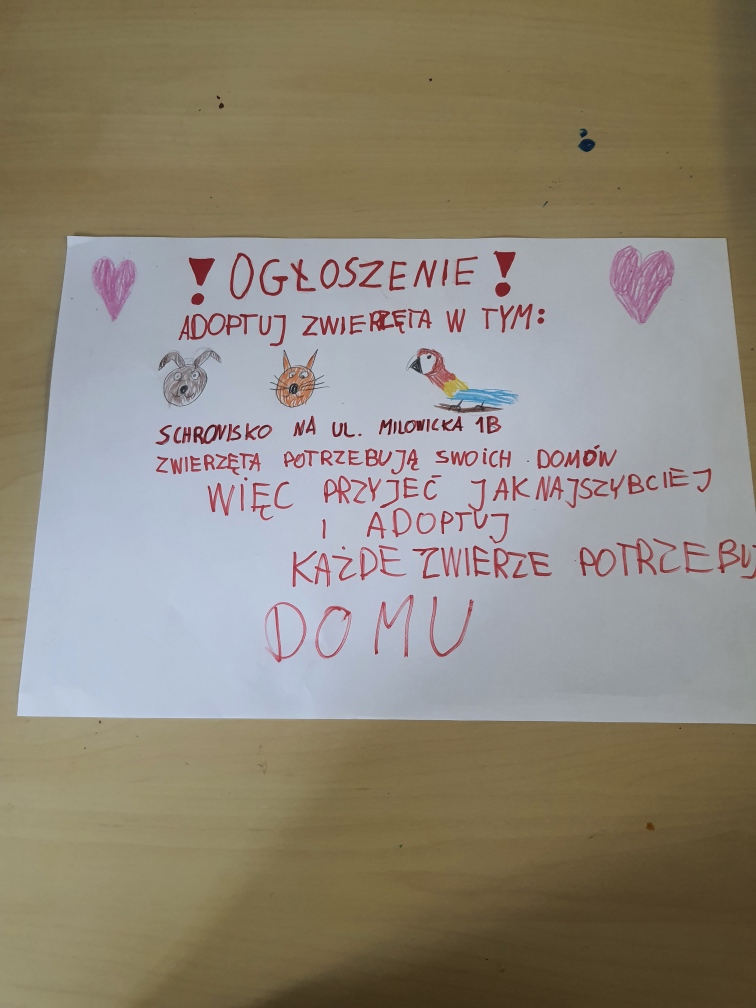 ! OGŁOSZENIE !
ADOPTUJ ZWIERZĘTA W TYM:
SCHRONISKO NA UL. MILOWICKA 1B
ZWIERZĘTA POTRZEBUJĄ SWOICH DOMÓW
WIĘC PRZYJEĆ JAK NAJSZYBCIEJ
I ADOPTUJ
KAŻDE ZWIERZE POTRZEBUJ
DOMU